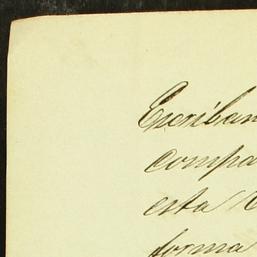 Escriban
compa
esta
forma